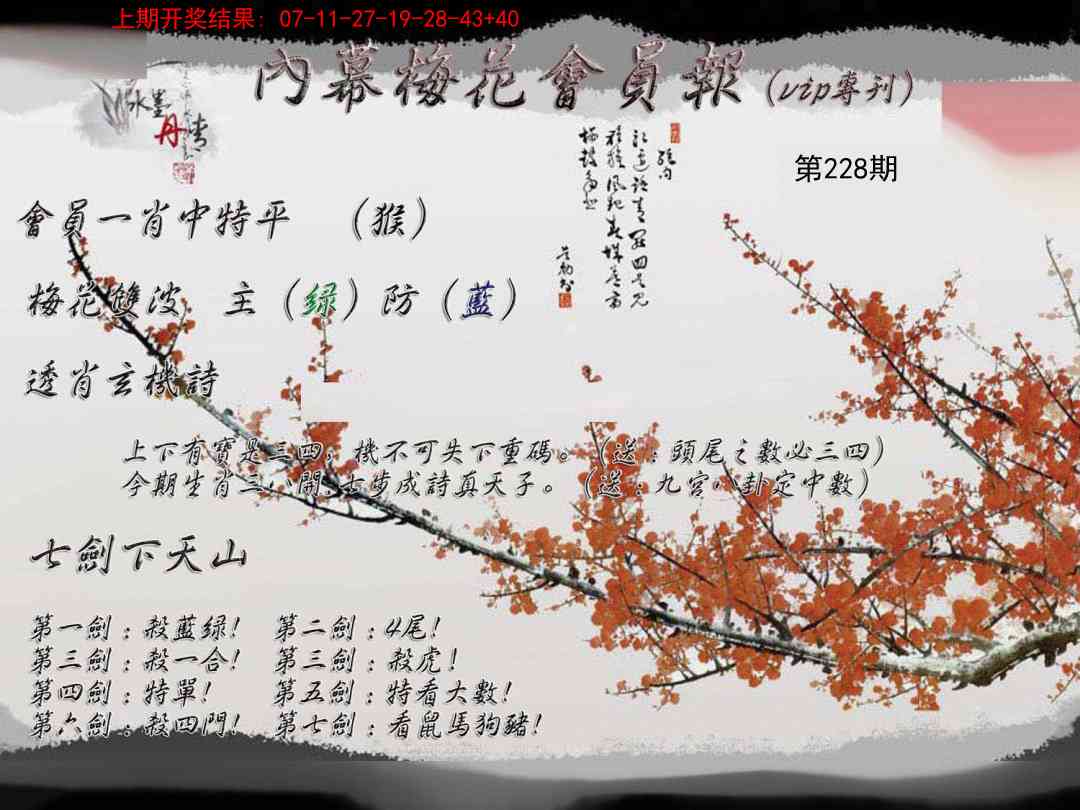 上期开奖结果: 07-11-27-19-28-43+40
內幕梅花會員報(vip專刊)
水墨
丹青
第228期
會員一肖中特平 （猴）
梅花雙波 主（绿）防（藍）
透肖玄機詩
上下有寶是三四，機不可失下重碼。（送：頭尾之數必三四）
今期生肖三八開,七步成詩真天子。（送：九宮八卦定中數）
七劍下天山
第一劍：殺藍绿! 第二劍：4尾!
第三劍：殺一合! 第三劍：殺虎!
第四劍：特單! 第五劍：特看大數!
第六劍：殺四門! 第七劍：看鼠馬狗豬!